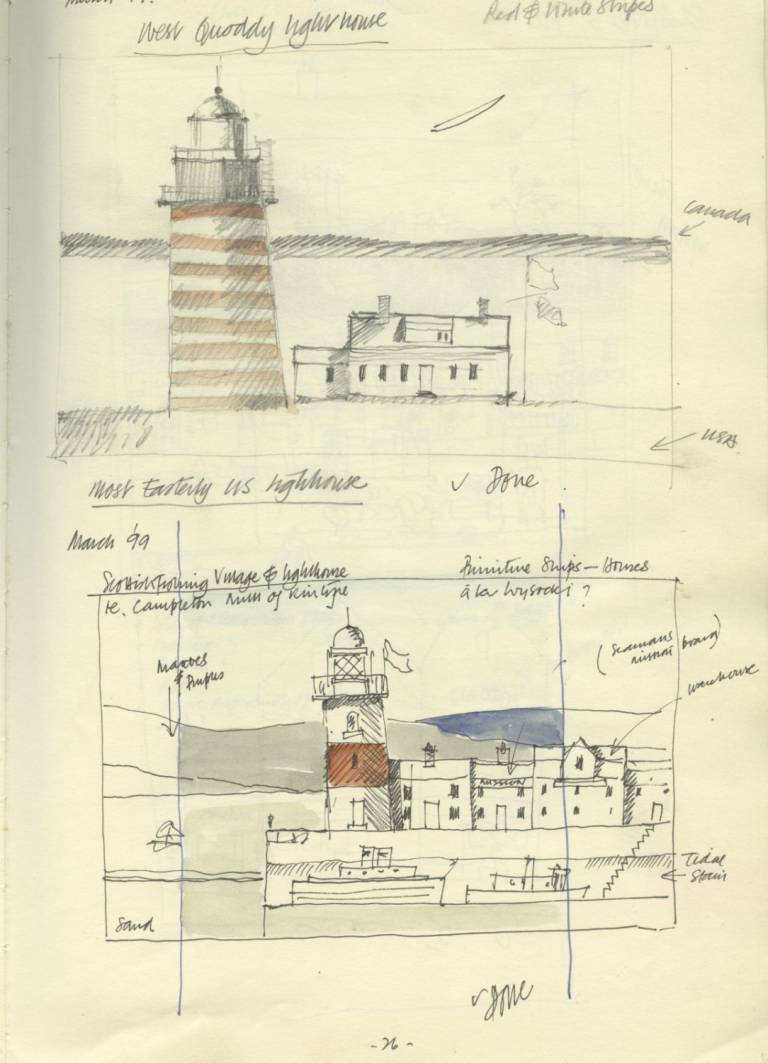 West Quoddy lighthouse
Red & White Stripes
Canada
USA
Most Easterly US lighthouse
✓ Done
March '99
Scottish Fishing Village & lighthouse
ie. Campleton Mull of Kintyre
Primitive Ships – Houses
à la Wysocki ?
Mauves
& Purples
(Seamans
mission
warehouse
MISSION
Tidal
Stain
Sand
✓ Done
- 26 -